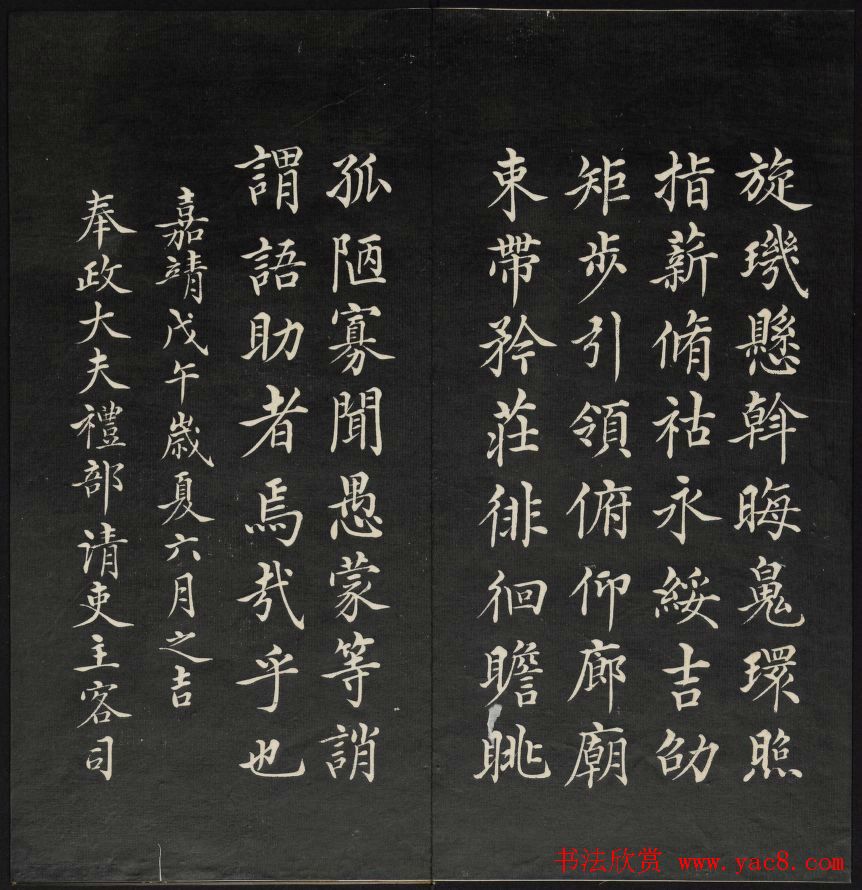 旋璣懸斡晦魄環照
指薪脩祜永綏吉劭
矩步引領俯仰廊廟
束帶矜莊徘徊瞻眺
孤陋寡聞愚蒙等誚
謂語助者焉哉乎也
嘉靖戊午歲夏六月之吉
奉政大夫禮部清吏主客司
书法欣赏 www.yac8.com